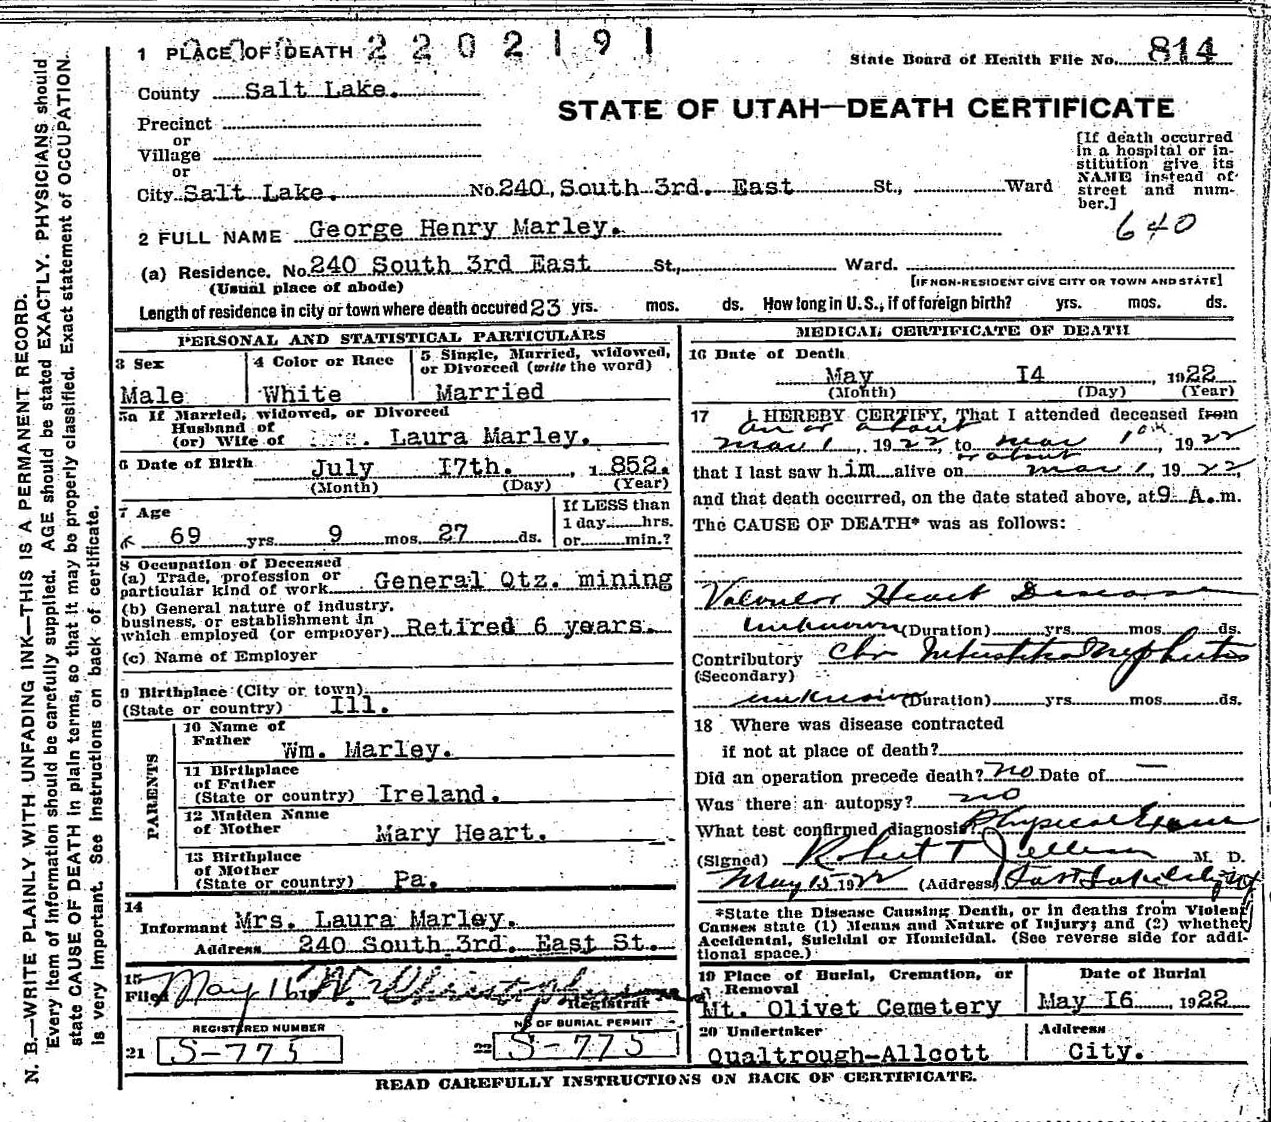 1 PLACE OF DEATH 2202191
State Board of Health File No. 814
County Salt Lake.
STATE OF UTAH—DEATH CERTIFICATE
Precinct
or
Village
or
City Salt Lake. No. 240, South 3rd. East St., Ward
[If death occurred
in a hospital or in-
stitution give its
NAME instead of
street and num-
ber.]
640
2 FULL NAME George Henry Marley.
(a) Residence. No. 240 South 3rd East St., Ward.
(Usual place of abode) [IF NON-RESIDENT GIVE CITY OR TOWN AND STATE]
Length of residence in city or town where death occured 23 yrs. mos. ds. How long in U.S., if of foreign birth? yrs. mos. ds.
PERSONAL AND STATISTICAL PARTICULARS
3 Sex
Male
4 Color or Race
White
5 Single, Married, widowed,
or Divorced (write the word)
Married
5a If Married, widowed, or Divorced
Husband of
(or) Wife of Mrs. Laura Marley.
6 Date of Birth July 17th. , 1852.
(Month) (Day) (Year)
7 Age
69 yrs. 9 mos. 27 ds.
If LESS than
1 day hrs.
or min.?
8 Occupation of Deceased
(a) Trade, profession or
particular kind of work General Qtz. mining
(b) General nature of Industry,
business, or establishment in
which employed (or employer) Retired 6 years.
(c) Name of Employer
9 Birthplace (City or town)
(State or country) Ill.
PARENTS
10 Name of
Father Wm. Marley.
11 Birthplace
of Father
(State or country) Ireland.
12 Maiden Name
of Mother Mary Heart.
13 Birthplace
of Mother
(State or country) Pa.
14
Informant Mrs. Laura Marley.
Address 240 South 3rd. East St.
15
Filed May 16
Registrar
REGISTERED NUMBER
21 S-775
No OF BURIAL PERMIT
22 S-775
MEDICAL CERTIFICATE OF DEATH
16 Date of Death
May 14 , 1922
(Month) (Day) (Year)
17 I HEREBY CERTIFY, That I attended deceased from
on or about
mar 1, 1922 to mar 10th, 1922
or about
that I last saw him alive on mar 1, 1922,
and that death occurred, on the date stated above, at 9 A. m.
The CAUSE OF DEATH* was as follows:
Valvular Heart Disease
unknown (Duration) yrs. mos. ds.
Contributory Chr Interstitial Nephritis
(Secondary)
unknown (Duration) yrs. mos. ds.
18 Where was disease contracted
if not at place of death?
Did an operation precede death? no Date of —
Was there an autopsy? no
What test confirmed diagnosis? Physical Exam
(Signed) Robert T M. D.
May 15 1922 (Address) Salt Lake City Ut
*State the Disease Causing Death, or in deaths from Violent
Causes state (1) Means and Nature of Injury; and (2) whether
Accidental, Suicidal or Homicidal. (See reverse side for addi-
tional space.)
19 Place of Burial, Cremation, or
Removal
Mt. Olivet Cemetery
Date of Burial
May 16 1922
20 Undertaker
Qualtrough-Allcott
Address
City.
READ CAREFULLY INSTRUCTIONS ON BACK OF CERTIFICATE.
N. B.—WRITE PLAINLY WITH UNFADING INK—THIS IS A PERMANENT RECORD.
Every item of Information should be carefully supplied. AGE should be stated EXACTLY. PHYSICIANS should
state CAUSE OF DEATH in plain terms, so that it may be properly classified. Exact statement of OCCUPATION
is very important. See instructions on back of certificate.